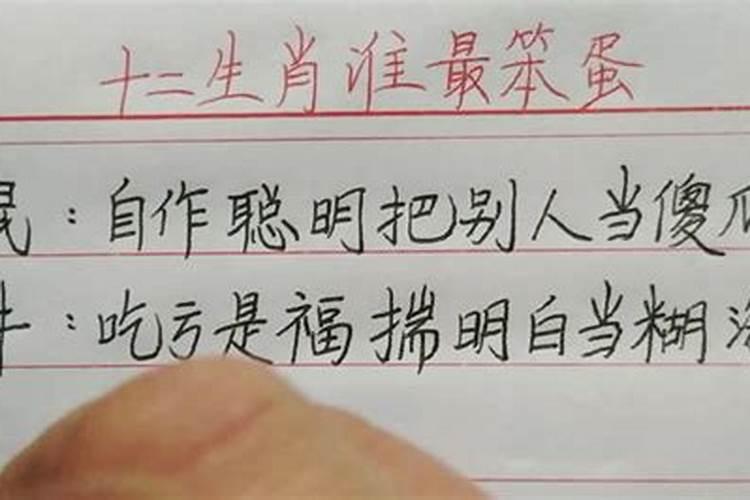 十二生肖谁最笨蛋
鼠：自作聪明把别人当傻瓜
牛：吃亏是福揣明白当糊涂